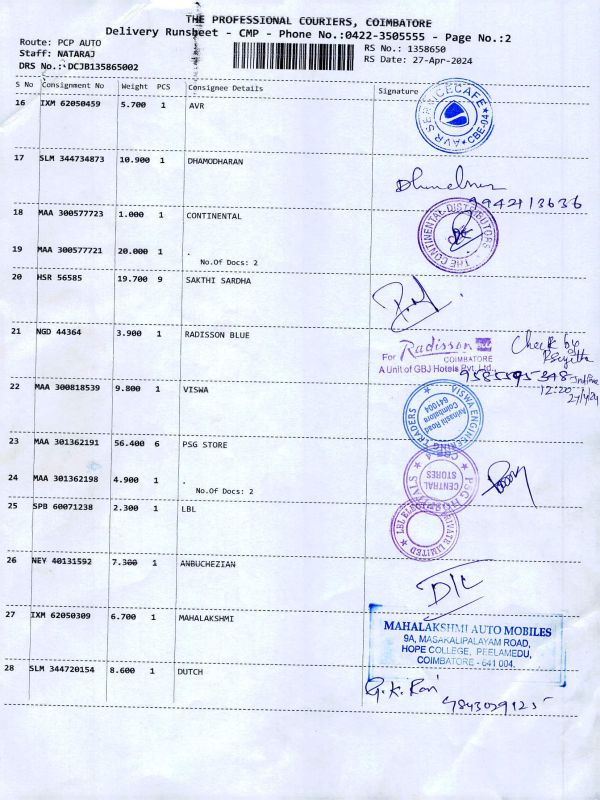 THE PROFESSIONAL COURIERS, COIMBATORE
Delivery Runsheet - CMP - Phone No.:0422-3505555 - Page No.:2
Route: PCP AUTO
RS No.: 1358650
Staff: NATARAJ
RS Date: 27-Apr-2024
DRS No.: DCJB135865002
S No Consignment No Weight PCS Consignee Details Signature
16 IXM 62050459 5.700 1 AVR
AVR SERVICECAFE CBE-04
17 SLM 344734873 10.900 1 DHAMODHARAN
9942113636
18 MAA 300577723 1.000 1 CONTINENTAL
THE CONTINENTAL DISTRIBUTORS
19 MAA 300577721 20.000 1 .
No.Of Docs: 2
20 HSR 56585 19.700 9 SAKTHI SARDHA
21 NGD 44364 3.900 1 RADISSON BLUE
For Radisson BLU
COIMBATORE
A Unit of GBJ Hotels Pvt. Ltd.,
Check by
12:20
22 MAA 300818539 9.800 1 VISWA
VISWA ENGINEERING TRADERS
Avinashi Road
Coimbatore
641004
23 MAA 301362191 56.400 6 PSG STORE
PSG HOSPITALS
CENTRAL
STORES
CBE-4
24 MAA 301362198 4.900 1 .
No.Of Docs: 2
25 SPB 60071238 2.300 1 LBL
PRIVATE LIMITED
26 NEY 40131592 7.300 1 ANBUCHEZIAN
27 IXM 62050309 6.700 1 MAHALAKSHMI
MAHALAKSHMI AUTO MOBILES
9A, MASAKALIPALAYAM ROAD,
HOPE COLLEGE, PEELAMEDU,
COIMBATORE - 641 004.
28 SLM 344720154 8.600 1 DUTCH
G.K. Ravi
9843029125